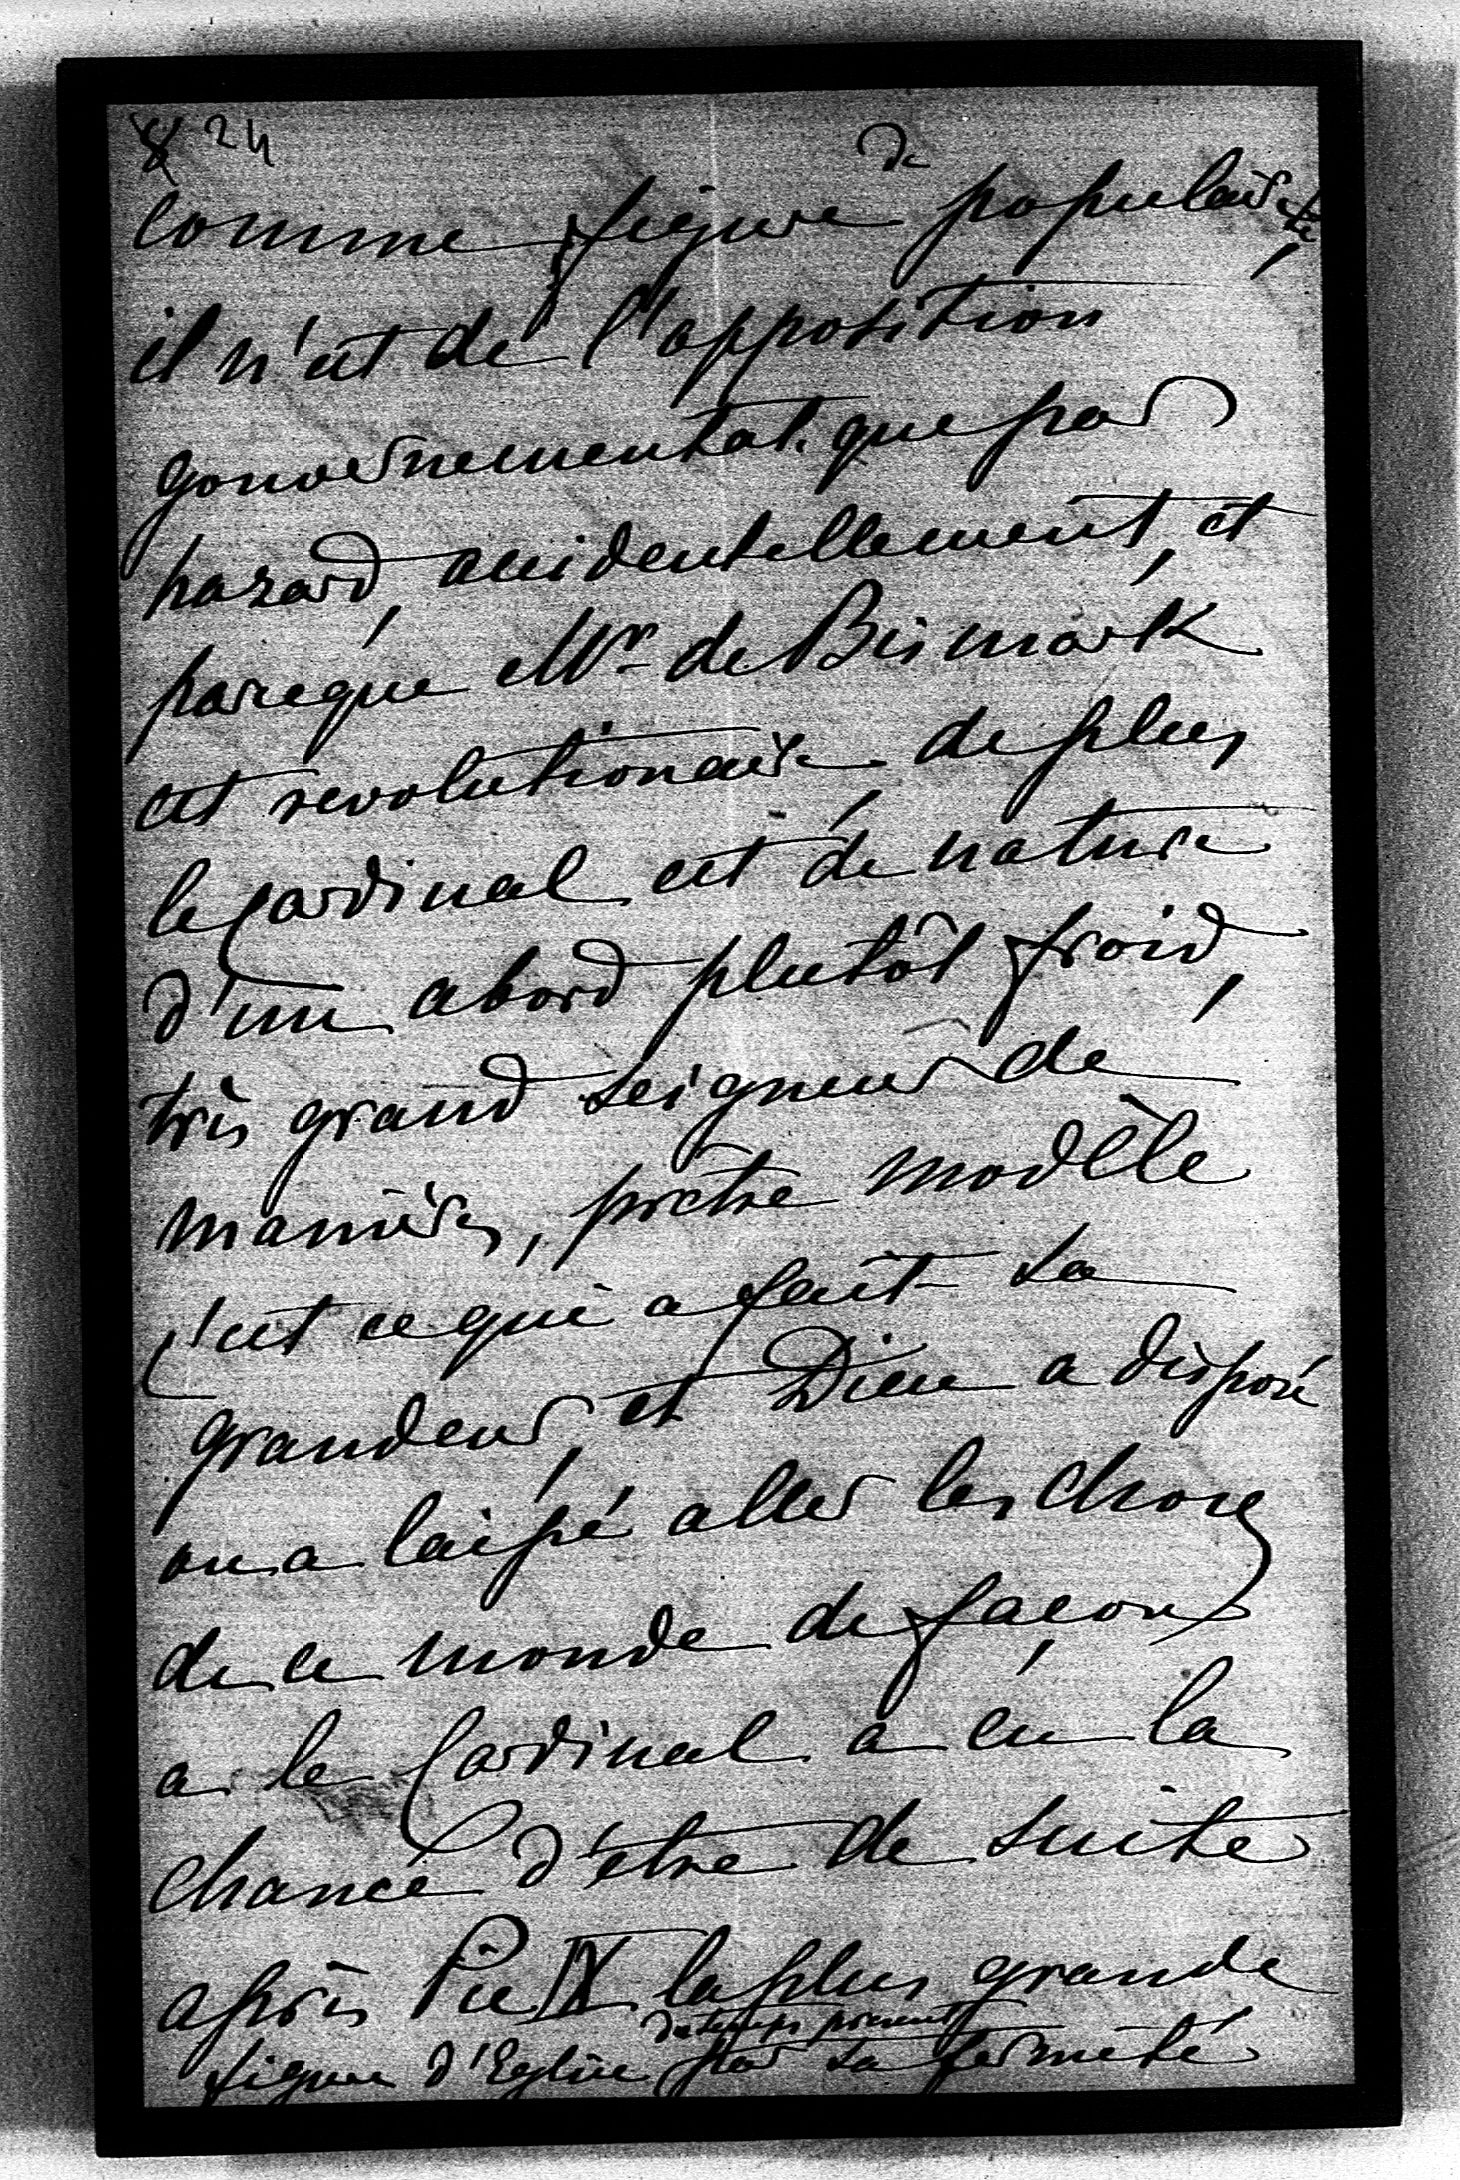 8 24
comme figure de popularité,
il n'est de l'opposition
gouvernementat. que par
hazard, accidentellement, et
parceque Mr. de Bismark
est revolutionaire. de plus,
le Cardinal est de nature
d'un abord plutôt froid,
très grand seigneur de
manières, prêtre modèle
c'est ce qui a fait sa
grandeur, et Dieu a disposé
ou a laissé aller les choses
de ce monde de façon
a le Cardinal a eu la
chance d'être de suite
après Pie IX la plus grande
figure d'Eglise du temps present par sa fermeté